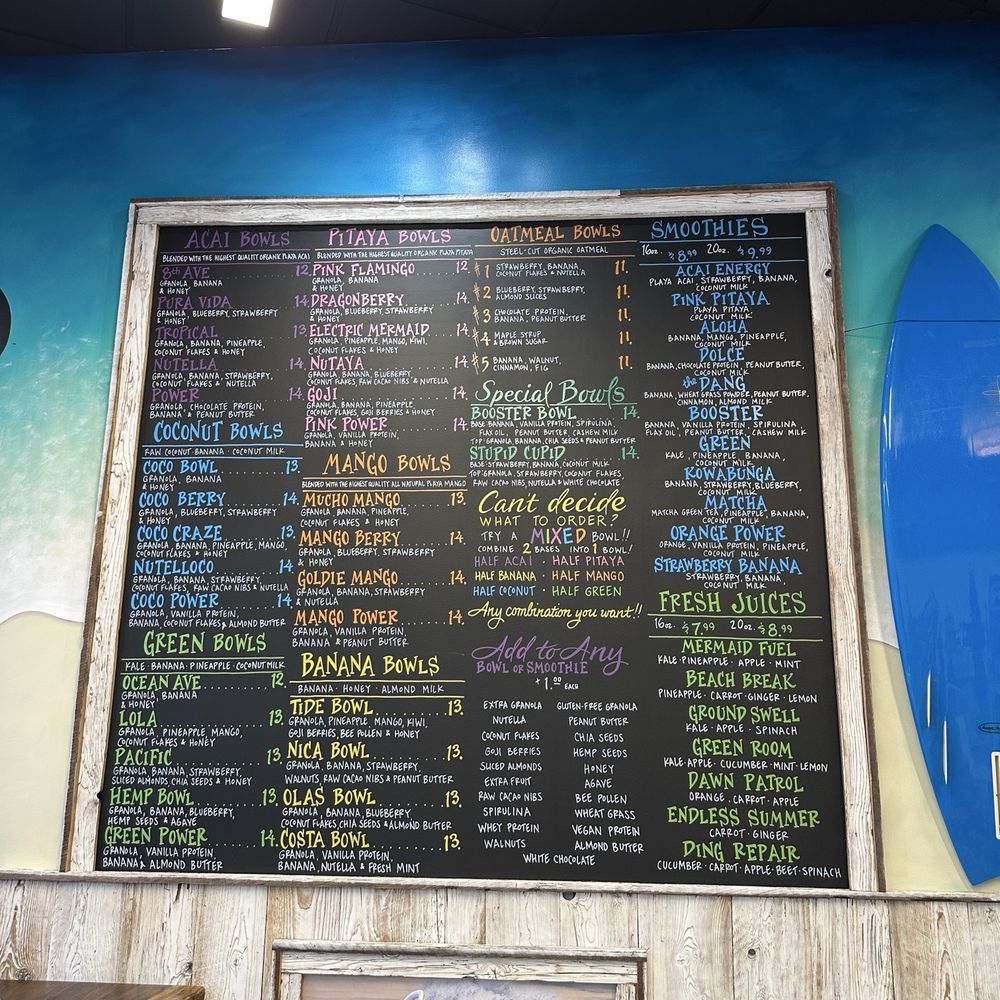 ACAI BOWLS
BLENDED WITH THE HIGHEST QUALITY ORGANIC PLAYA ACAI
8th AVE 12.
GRANOLA, BANANA
& HONEY
PURA VIDA 14.
GRANOLA, BLUEBERRY, STRAWBERRY
& HONEY
TROPICAL 13.
GRANOLA, BANANA, PINEAPPLE,
COCONUT FLAKES & HONEY
NUTELLA 14.
GRANOLA, BANANA, STRAWBERRY,
COCONUT FLAKES & NUTELLA
POWER 14.
GRANOLA, CHOCOLATE PROTEIN,
BANANA & PEANUT BUTTER
COCONUT BOWLS
RAW COCONUT · BANANA · COCONUT MILK
COCO BOWL 13.
GRANOLA, BANANA
& HONEY
COCO BERRY 14.
GRANOLA, BLUEBERRY, STRAWBERRY
& HONEY
COCO CRAZE 13.
GRANOLA, BANANA, PINEAPPLE, MANGO,
COCONUT FLAKES & HONEY
NUTELLOCO 14.
GRANOLA, BANANA, STRAWBERRY,
COCONUT FLAKES, RAW CACAO NIBS & NUTELLA
COCO POWER 14.
GRANOLA, VANILLA PROTEIN,
BANANA, COCONUT FLAKES & ALMOND BUTTER
GREEN BOWLS
KALE · BANANA · PINEAPPLE · COCONUT MILK
OCEAN AVE 12.
GRANOLA, BANANA
& HONEY
LOLA 13.
GRANOLA, PINEAPPLE, MANGO,
COCONUT FLAKES & HONEY
PACIFIC 13.
GRANOLA, BANANA, STRAWBERRY,
SLICED ALMONDS, CHIA SEEDS & HONEY
HEMP BOWL 13.
GRANOLA, BANANA, BLUEBERRY,
HEMP SEEDS & AGAVE
GREEN POWER 14.
GRANOLA, VANILLA PROTEIN,
BANANA & ALMOND BUTTER
PITAYA BOWLS
BLENDED WITH THE HIGHEST QUALITY ORGANIC PLAYA PITAYA
PINK FLAMINGO 12.
GRANOLA, BANANA
& HONEY
DRAGONBERRY 14.
GRANOLA, BLUEBERRY, STRAWBERRY
& HONEY
ELECTRIC MERMAID 14.
GRANOLA, PINEAPPLE, MANGO, KIWI,
COCONUT FLAKES & HONEY
NUTAYA 14.
GRANOLA, BANANA, BLUEBERRY,
COCONUT FLAKES, RAW CACAO NIBS & NUTELLA
GOJI 14.
GRANOLA, BANANA, PINEAPPLE
COCONUT FLAKES, GOJI BERRIES & HONEY
PINK POWER 14.
GRANOLA, VANILLA PROTEIN,
BANANA & HONEY
MANGO BOWLS
BLENDED WITH THE HIGHEST QUALITY ALL NATURAL PLAYA MANGO
MUCHO MANGO 13.
GRANOLA, BANANA, PINEAPPLE,
COCONUT FLAKES & HONEY
MANGO BERRY 14.
GRANOLA, BLUEBERRY, STRAWBERRY
& HONEY
GOLDIE MANGO 14.
GRANOLA, BANANA, STRAWBERRY
& NUTELLA
MANGO POWER 14.
GRANOLA, VANILLA PROTEIN,
BANANA & PEANUT BUTTER
BANANA BOWLS
BANANA · HONEY · ALMOND MILK
TIDE BOWL 13.
GRANOLA, PINEAPPLE, MANGO, KIWI,
GOJI BERRIES, BEE POLLEN & HONEY
NICA BOWL 13.
GRANOLA, BANANA, STRAWBERRY,
WALNUTS, RAW CACAO NIBS & PEANUT BUTTER
OLAS BOWL 13.
GRANOLA, BANANA, BLUEBERRY,
COCONUT FLAKES CHIA SEEDS & ALMOND BUTTER
COSTA BOWL 13.
GRANOLA, VANILLA PROTEIN,
BANANA, NUTELLA & FRESH MINT
OATMEAL BOWLS
STEEL-CUT ORGANIC OATMEAL
#1 STRAWBERRY, BANANA 11.
COCONUT FLAKES & NUTELLA
#2 BLUEBERRY, STRAWBERRY, 11.
ALMOND SLICES
#3 CHOCOLATE PROTEIN, 11.
BANANA, PEANUT BUTTER
#4 MAPLE SYRUP 11.
& BROWN SUGAR
#5 BANANA, WALNUT, 11.
CINNAMON, FIG
Special Bowls
BOOSTER BOWL 14.
BASE: BANANA, VANILLA PROTEIN, SPIRULINA,
FLAX OIL, PEANUT BUTTER, CASHEW MILK
TOP: GRANOLA, BANANA, CHIA SEEDS & PEANUT BUTTER
STUPID CUPID 14.
BASE: STRAWBERRY, BANANA, COCONUT MILK
TOP: GRANOLA, STRAWBERRY, COCONUT FLAKES,
RAW CACAO NIBS, NUTELLA & WHITE CHOCOLATE
Can't decide
WHAT TO ORDER?
TRY A MIXED BOWL!!
COMBINE 2 BASES INTO 1 BOWL!
HALF ACAI · HALF PITAYA
HALF BANANA · HALF MANGO
HALF COCONUT · HALF GREEN
Any combination you want!!
Add to Any
BOWL OR SMOOTHIE
+1.00 EACH
EXTRA GRANOLA GLUTEN-FREE GRANOLA
NUTELLA PEANUT BUTTER
COCONUT FLAKES CHIA SEEDS
GOJI BERRIES HEMP SEEDS
SLICED ALMONDS HONEY
EXTRA FRUIT AGAVE
RAW CACAO NIBS BEE POLLEN
SPIRULINA WHEAT GRASS
WHEY PROTEIN VEGAN PROTEIN
WALNUTS ALMOND BUTTER
WHITE CHOCOLATE
SMOOTHIES
16oz. $8.99 20oz. $9.99
ACAI ENERGY
PLAYA ACAI, STRAWBERRY, BANANA,
COCONUT MILK
PINK PITAYA
PLAYA PITAYA
COCONUT MILK
ALOHA
BANANA, MANGO, PINEAPPLE,
COCONUT MILK
DOLCE
BANANA, CHOCOLATE PROTEIN, PEANUT BUTTER,
COCONUT MILK
the DANG
BANANA, WHEAT GRASS POWDER, PEANUT BUTTER,
CINNAMON, ALMOND MILK
BOOSTER
BANANA, VANILLA PROTEIN, SPIRULINA,
FLAX OIL, PEANUT BUTTER, CASHEW MILK
GREEN
KALE, PINEAPPLE, BANANA,
COCONUT MILK
KOWABUNGA
BANANA, STRAWBERRY, BLUEBERRY,
COCONUT MILK
MATCHA
MATCHA GREEN TEA, PINEAPPLE, BANANA,
COCONUT MILK
ORANGE POWER
ORANGE, VANILLA PROTEIN, PINEAPPLE,
COCONUT MILK
STRAWBERRY BANANA
STRAWBERRY, BANANA,
COCONUT MILK
FRESH JUICES
16oz. $7.99 20oz. $8.99
MERMAID FUEL
KALE · PINEAPPLE · APPLE · MINT
BEACH BREAK
PINEAPPLE · CARROT · GINGER · LEMON
GROUND SWELL
KALE · APPLE · SPINACH
GREEN ROOM
KALE · APPLE · CUCUMBER · MINT · LEMON
DAWN PATROL
ORANGE · CARROT · APPLE
ENDLESS SUMMER
CARROT · GINGER
DING REPAIR
CUCUMBER · CARROT · APPLE · BEET · SPINACH